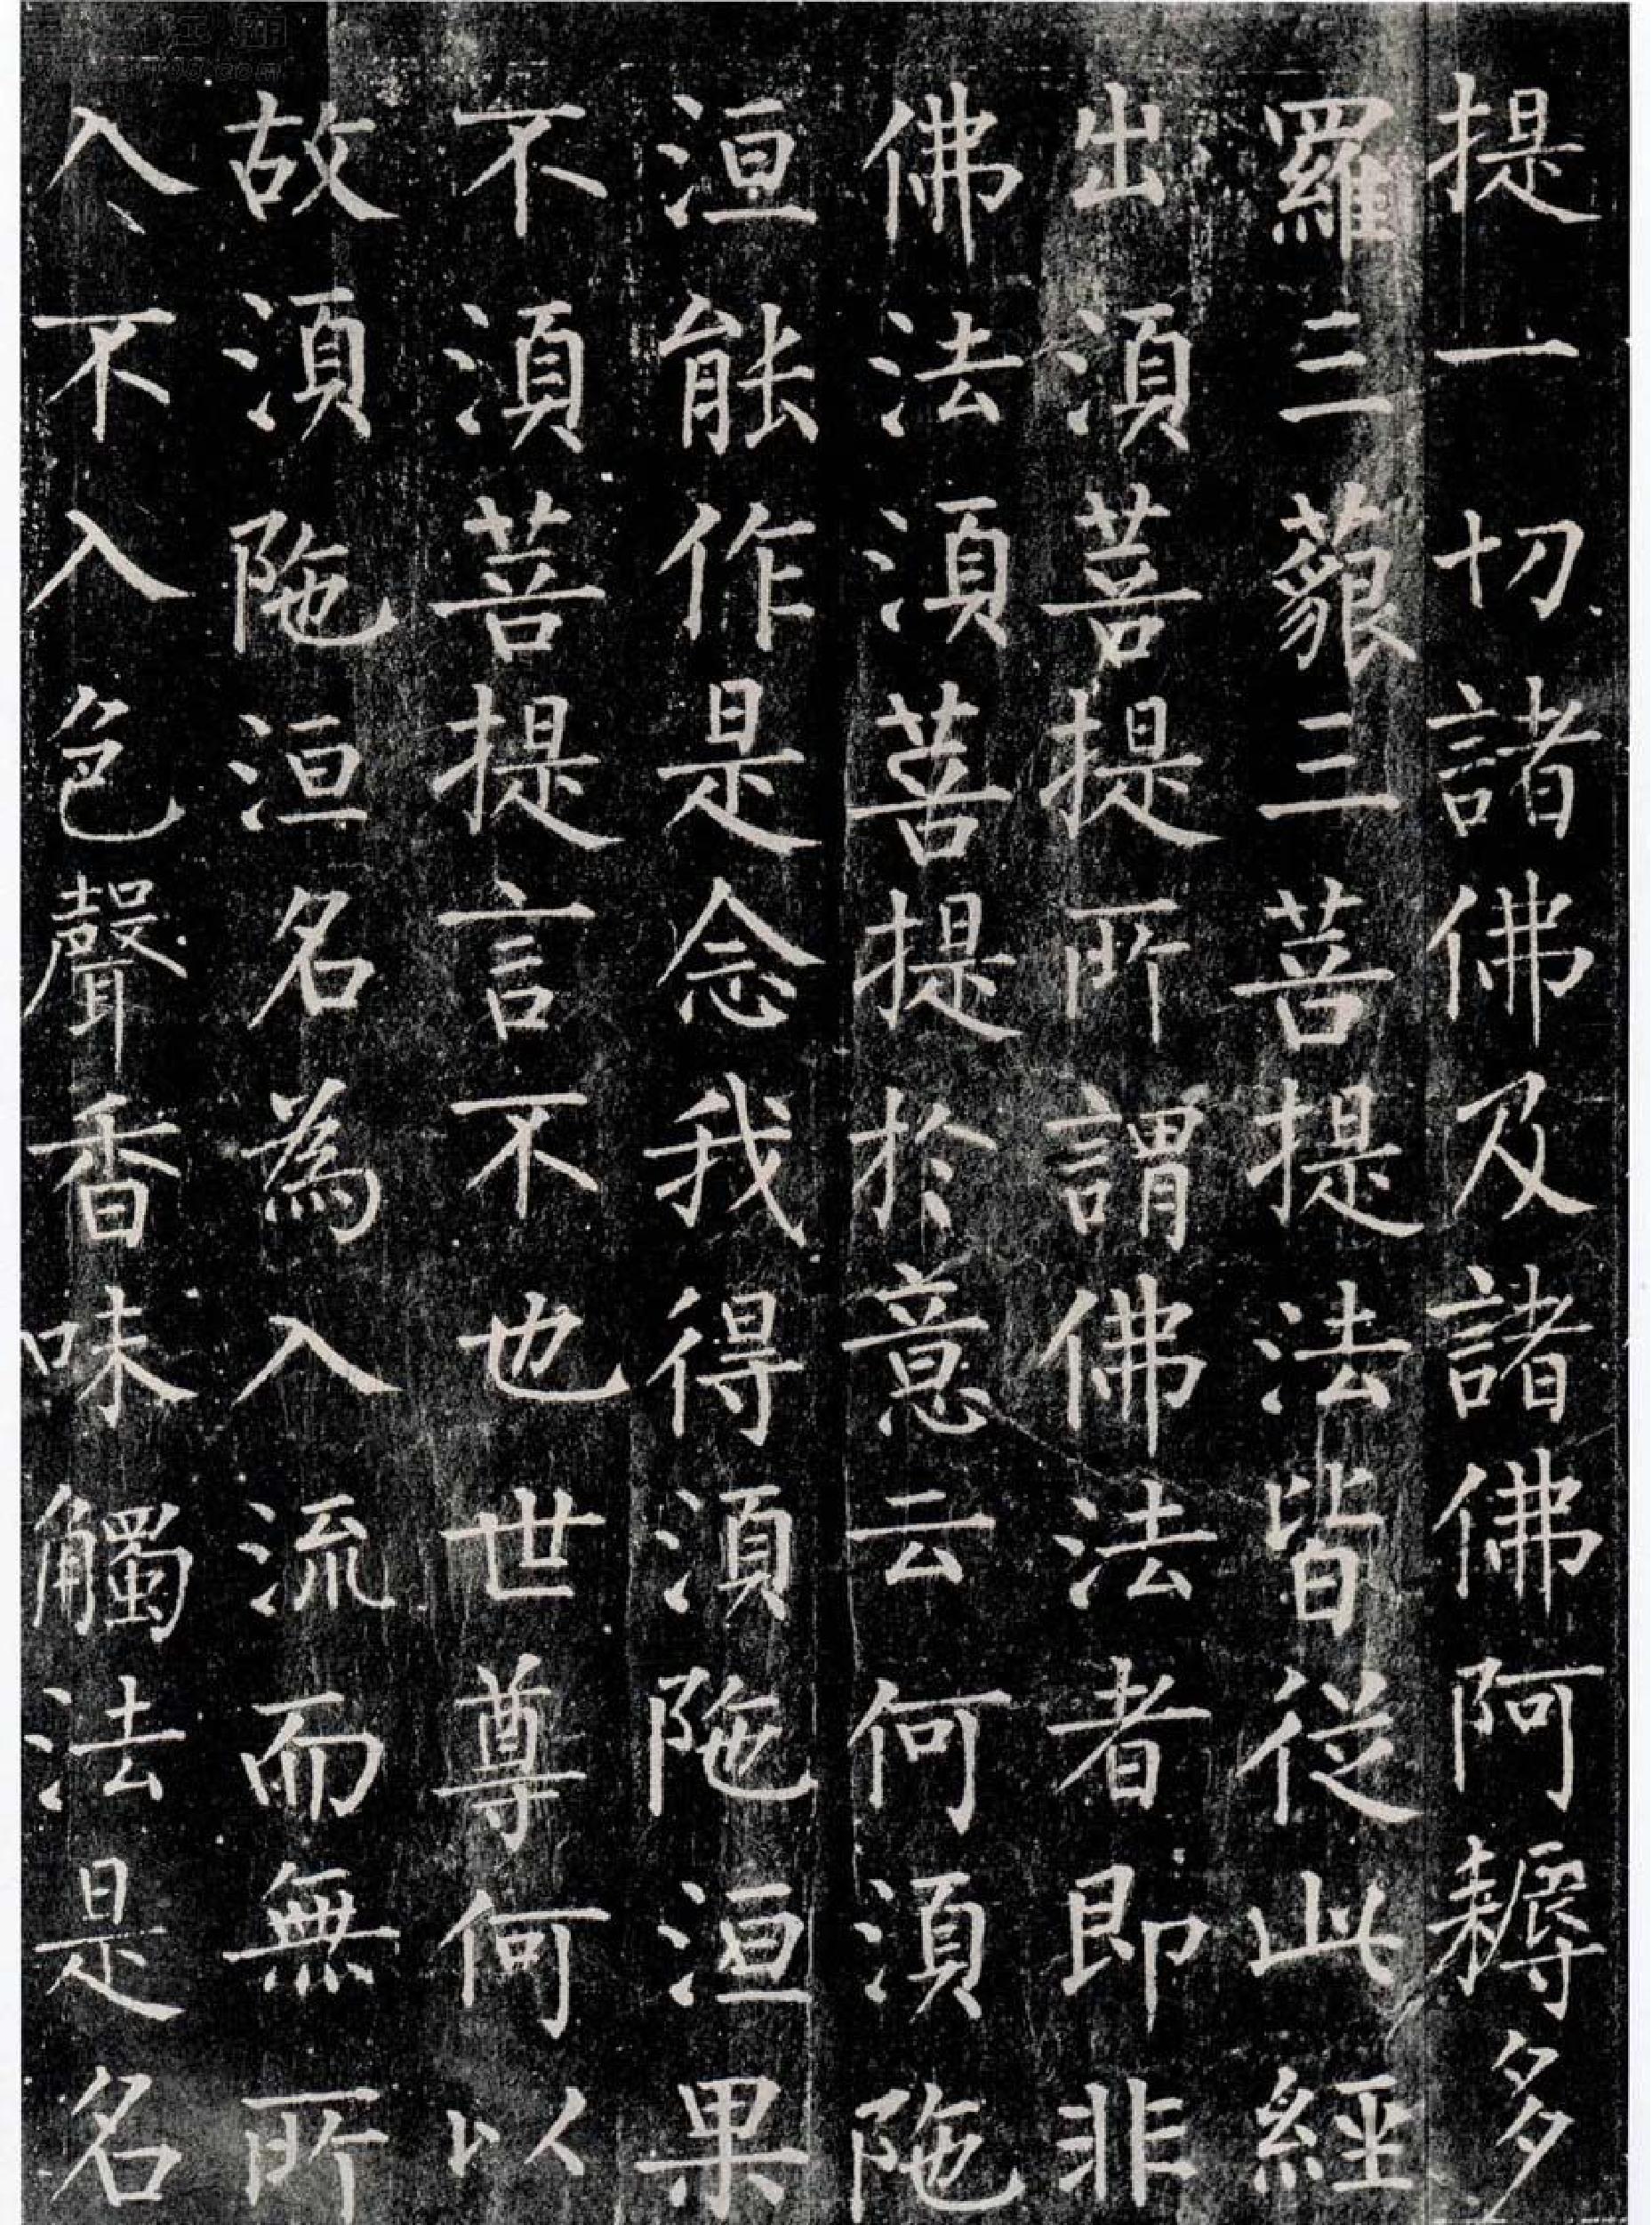 提一切諸佛及諸佛阿耨多
羅三藐三菩提法皆從此經
出湏菩提所謂佛法者即非
佛法湏菩提於意云何湏陁
洹能作是念我得湏陁洹果
不湏菩提言不也世尊何以
故湏陁洹名為入流而無所
入不入色聲香味觸法是名